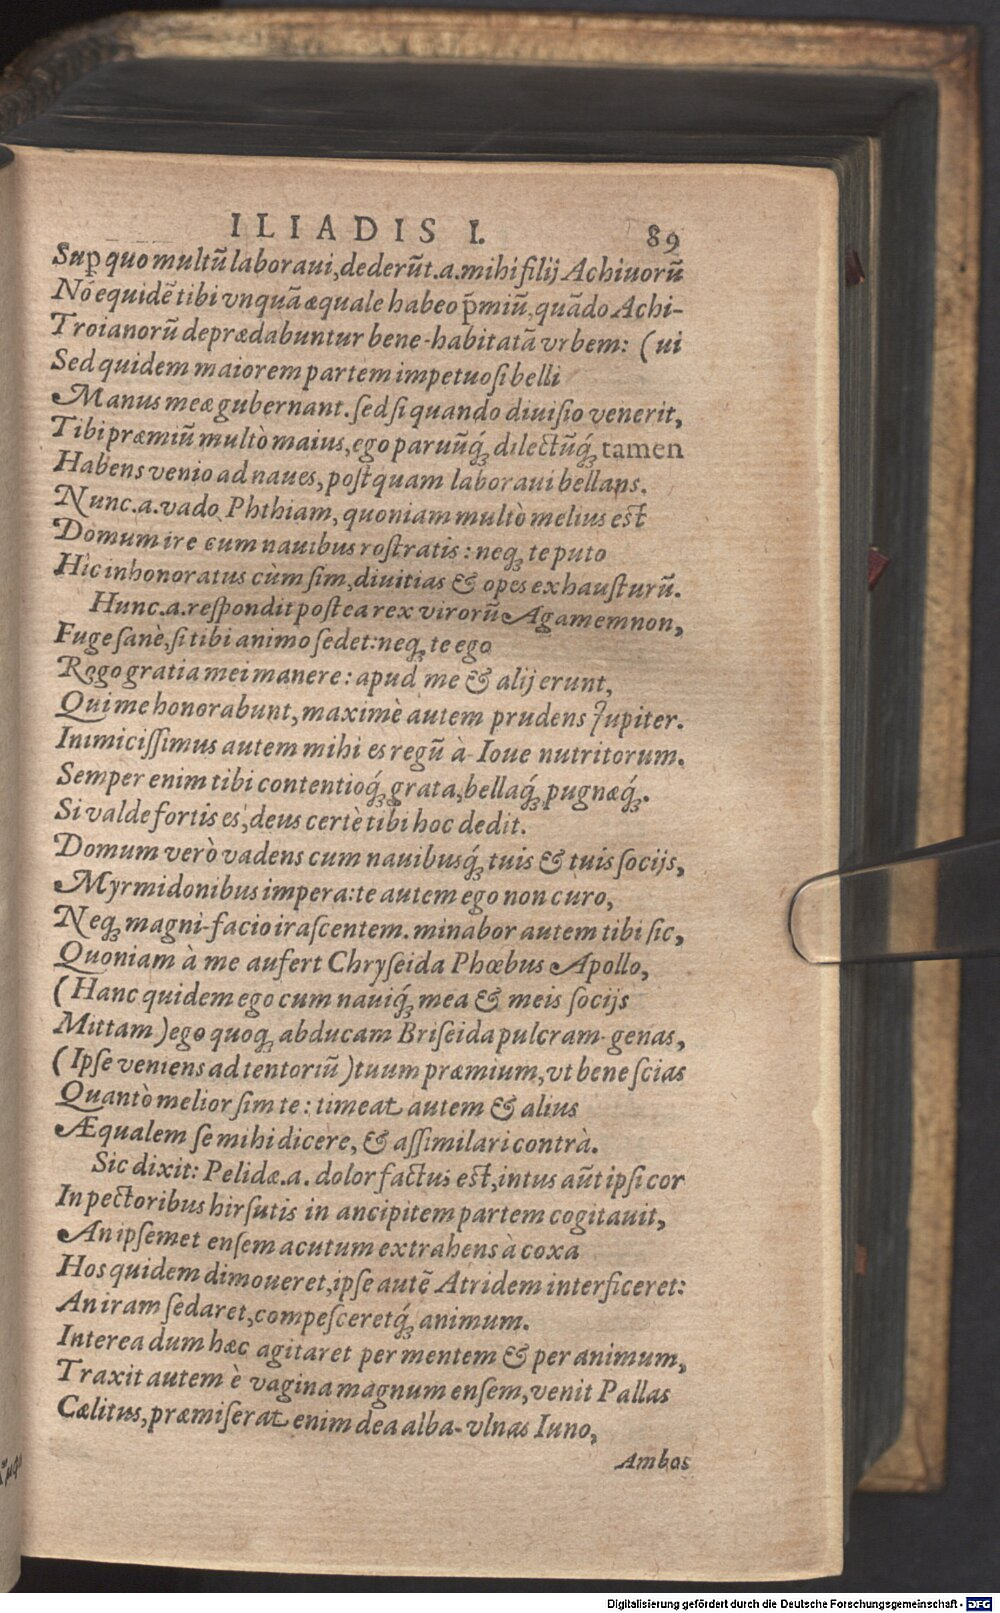 ILIADIS I. 89
Sup̱ quo multũ laboraui, dederũt.a.mihi filij Achiuorũ
Nõ equidẽ tibi vnquã æquale habeo p̃miũ, quãdo Achi-
Troianorũ deprædabuntur bene-habitatã vrbem: (ui
Sed quidem maiorem partem impetuosi belli
Manus meæ gubernant. sed si quando diuisio venerit,
Tibi præmiũ multò maius, ego paruũq́ꝫ dilectũq́ꝫ tamen
Habens venio ad naues, postquam laboraui bellans.
Nunc.a.vado Phthiam, quoniam multò melius est
Domum ire cum nauibus rostratis: neqꝫ te puto
Hic inhonoratus cùm sim, diuitias & opes exhausturũ.
Hunc.a.respondit postea rex virorũ Agamemnon,
Fuge sanè, si tibi animo sedet: neqꝫ te ego
Rogo gratia mei manere: apud me & alij erunt,
Qui me honorabunt, maximè autem prudens Jupiter.
Inimicissimus autem mihi es regũ à Ioue nutritorum.
Semper enim tibi contentioq́ꝫ grata, bellaq́ꝫ pugnæq́ꝫ.
Si valde fortis es, deus certè tibi hoc dedit.
Domum verò vadens cum nauibusq́ꝫ tuis & tuis socijs,
Myrmidonibus impera: te autem ego non curo,
Neqꝫ magni-facio irascentem. minabor autem tibi sic,
Quoniam à me aufert Chryseida Phœbus Apollo,
(Hanc quidem ego cum nauiq́ꝫ mea & meis socijs
Mittam) ego quoqꝫ abducam Briseida pulcram-genas,
(Ipse veniens ad tentoriũ) tuum præmium, vt bene scias
Quantò melior sim te: timeat autem & alius
Æqualem se mihi dicere, & assimilari contrà.
Sic dixit: Pelidæ.a.dolor factus est, intus aũt ipsi cor
In pectoribus hirsutis in ancipitem partem cogitauit,
An ipsemet ensem acutum extrahens à coxa
Hos quidem dimoueret, ipse autẽ Atridem interficeret:
An iram sedaret, compesceretq́ꝫ animum.
Interea dum hæc agitaret per mentem & per animum,
Traxit autem è vagina magnum ensem, venit Pallas
Cælitus, præmiserat enim dea alba-vlnas Iuno,
Ambos
Digitalisierung gefördert durch die Deutsche Forschungsgemeinschaft - DFG